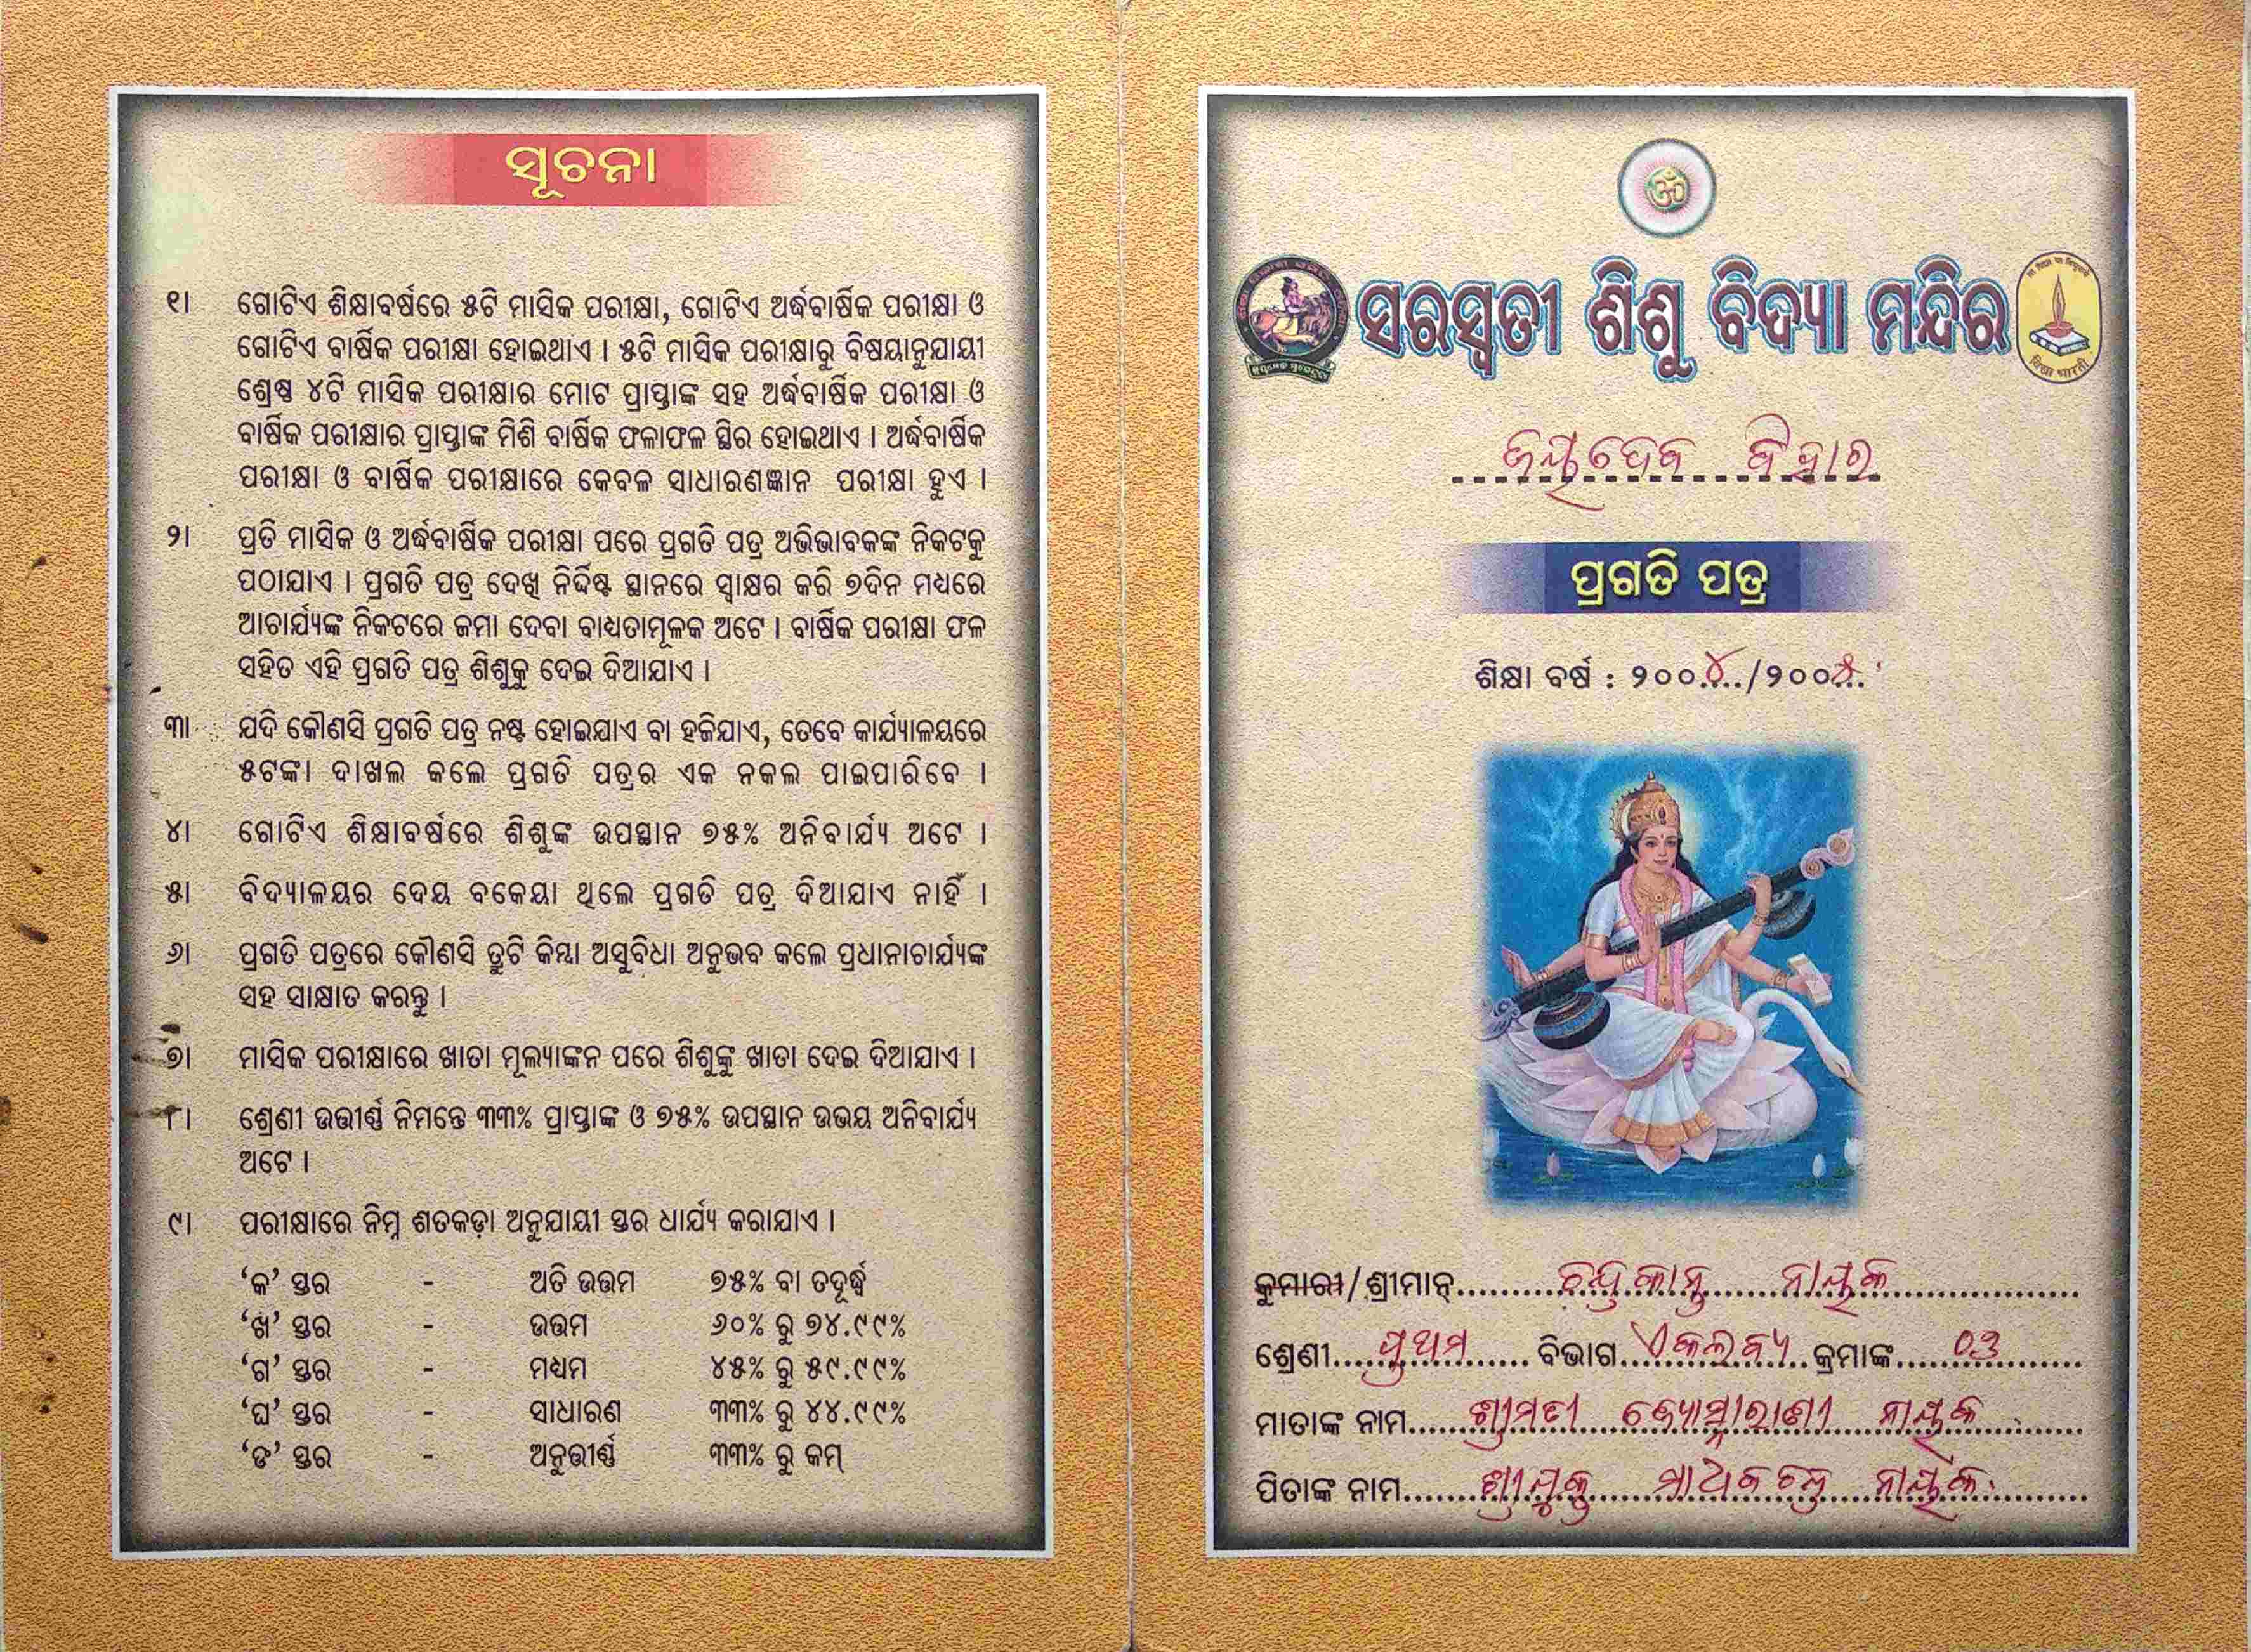 ସୂଚନା
୧। ଗୋଟିଏ ଶିକ୍ଷାବର୍ଷରେ ୫ଟି ମାସିକ ପରୀକ୍ଷା, ଗୋଟିଏ ଅର୍ଦ୍ଧବାର୍ଷିକ ପରୀକ୍ଷା ଓ
ଗୋଟିଏ ବାର୍ଷିକ ପରୀକ୍ଷା ହୋଇଥାଏ । ୫ଟି ମାସିକ ପରୀକ୍ଷାରୁ ବିଷୟାନୁଯାୟୀ
ଶ୍ରେଷ୍ଠ ୪ଟି ମାସିକ ପରୀକ୍ଷାର ମୋଟ ପ୍ରାପ୍ତାଙ୍କ ସହ ଅର୍ଦ୍ଧବାର୍ଷିକ ପରୀକ୍ଷା ଓ
ବାର୍ଷିକ ପରୀକ୍ଷାର ପ୍ରାପ୍ତାଙ୍କ ମିଶି ବାର୍ଷିକ ଫଳାଫଳ ସ୍ଥିର ହୋଇଥାଏ । ଅର୍ଦ୍ଧବାର୍ଷିକ
ପରୀକ୍ଷା ଓ ବାର୍ଷିକ ପରୀକ୍ଷାରେ କେବଳ ସାଧାରଣଜ୍ଞାନ ପରୀକ୍ଷା ହୁଏ ।
୨। ପ୍ରତି ମାସିକ ଓ ଅର୍ଦ୍ଧବାର୍ଷିକ ପରୀକ୍ଷା ପରେ ପ୍ରଗତି ପତ୍ର ଅଭିଭାବକଙ୍କ ନିକଟକୁ
ପଠାଯାଏ । ପ୍ରଗତି ପତ୍ର ଦେଖି ନିର୍ଦ୍ଦିଷ୍ଟ ସ୍ଥାନରେ ସ୍ୱାକ୍ଷର କରି ୭ଦିନ ମଧ୍ୟରେ
ଆଚାର୍ଯ୍ୟଙ୍କ ନିକଟରେ ଜମା ଦେବା ବାଧ୍ୟତାମୂଳକ ଅଟେ । ବାର୍ଷିକ ପରୀକ୍ଷା ଫଳ
ସହିତ ଏହି ପ୍ରଗତି ପତ୍ର ଶିଶୁକୁ ଦେଇ ଦିଆଯାଏ ।
୩। ଯଦି କୌଣସି ପ୍ରଗତି ପତ୍ର ନଷ୍ଟ ହୋଇଯାଏ ବା ହଜିଯାଏ, ତେବେ କାର୍ଯ୍ୟାଳୟରେ
୫ଟଙ୍କା ଦାଖଲ କଲେ ପ୍ରଗତି ପତ୍ରର ଏକ ନକଲ ପାଇପାରିବେ ।
୪। ଗୋଟିଏ ଶିକ୍ଷାବର୍ଷରେ ଶିଶୁଙ୍କ ଉପସ୍ଥାନ ୭୫% ଅନିବାର୍ଯ୍ୟ ଅଟେ ।
୫। ବିଦ୍ୟାଳୟର ଦେୟ ବକେୟା ଥିଲେ ପ୍ରଗତି ପତ୍ର ଦିଆଯାଏ ନାହିଁ ।
୬। ପ୍ରଗତି ପତ୍ରରେ କୌଣସି ତ୍ରୁଟି କିମ୍ଭା ଅସୁବିଧା ଅନୁଭବ କଲେ ପ୍ରଧାନାଚାର୍ଯ୍ୟଙ୍କ
ସହ ସାକ୍ଷାତ କରନ୍ତୁ ।
୭। ମାସିକ ପରୀକ୍ଷାରେ ଖାତା ମୂଲ୍ୟାଙ୍କନ ପରେ ଶିଶୁଙ୍କୁ ଖାତା ଦେଇ ଦିଆଯାଏ ।
୮। ଶ୍ରେଣୀ ଉତ୍ତୀର୍ଣ୍ଣ ନିମନ୍ତେ ୩୩% ପ୍ରାପ୍ତାଙ୍କ ଓ ୭୫% ଉପସ୍ଥାନ ଉଭୟ ଅନିବାର୍ଯ୍ୟ
ଅଟେ ।
୯। ପରୀକ୍ଷାରେ ନିମ୍ନ ଶତକଡ଼ା ଅନୁଯାୟୀ ସ୍ତର ଧାର୍ଯ୍ୟ କରାଯାଏ ।
‘କ’ ସ୍ତର - ଅତି ଉତ୍ତମ ୭୫% ବା ତଦୂର୍ଦ୍ଧ୍ୱ
‘ଖ’ ସ୍ତର - ଉତ୍ତମ ୬୦% ରୁ ୭୪.୯୯%
‘ଗ’ ସ୍ତର - ମଧ୍ୟମ ୪୫% ରୁ ୫୯.୯୯%
‘ଘ’ ସ୍ତର - ସାଧାରଣ ୩୩% ରୁ ୪୪.୯୯%
‘ଙ’ ସ୍ତର - ଅନୁତ୍ତୀର୍ଣ୍ଣ ୩୩% ରୁ କମ୍
ସରସ୍ୱତୀ ଶିଶୁ ବିଦ୍ୟା ମନ୍ଦିର
विद्या भारती
ଜୟଦେବ ବିହାର
ପ୍ରଗତି ପତ୍ର
ଶିକ୍ଷା ବର୍ଷ : ୨୦୦୪/୨୦୦୫
କୁମାରୀ/ଶ୍ରୀମାନ୍ ଚନ୍ଦ୍ରକାନ୍ତ ନାୟକ
ଶ୍ରେଣୀ ପ୍ରଥମ ବିଭାଗ ଏକଲବ୍ୟ କ୍ରମାଙ୍କ ୦୬
ମାତାଙ୍କ ନାମ ଶ୍ରୀମତୀ ଜ୍ୟୋତ୍ସ୍ନାରାଣୀ ନାୟକ
ପିତାଙ୍କ ନାମ ଶ୍ରୀଯୁକ୍ତ ନାୟକ